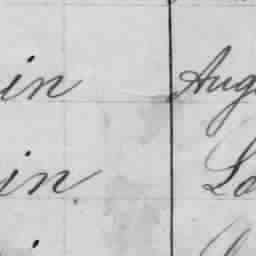 in Aug
in. Lo